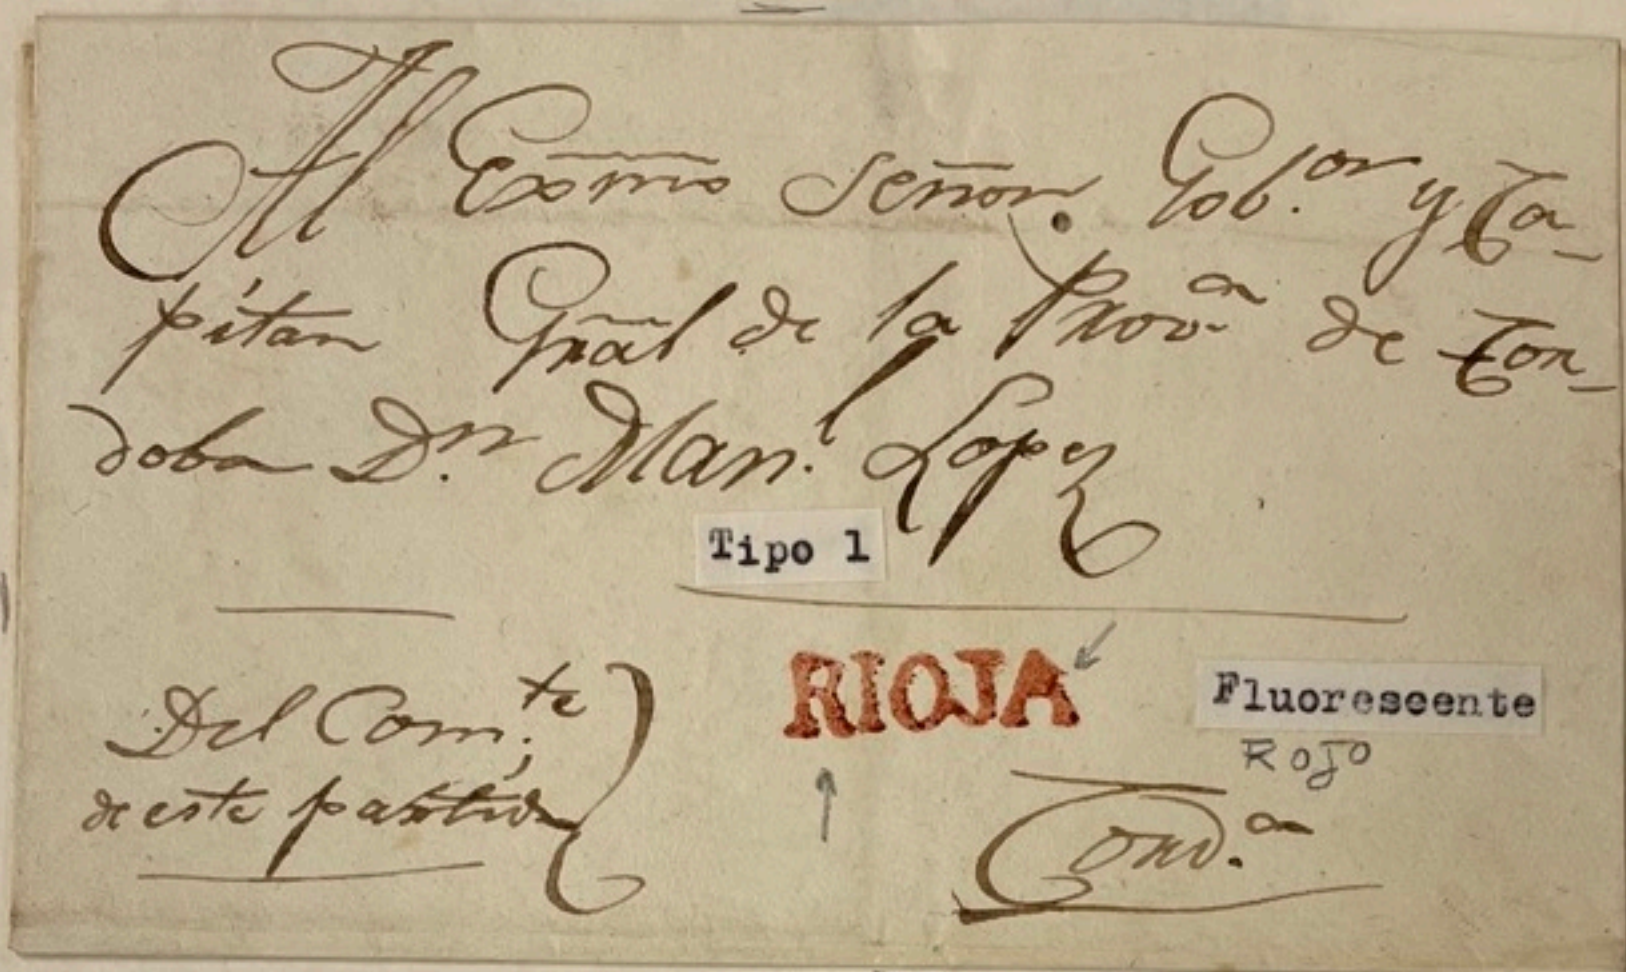 Al Exmo Señor Gob.or y Ca-
pitan Gñal de la Prov.a de Cor-
doba D.n Man.l Lopez
Tipo 1
RIOJA
Del Com.te
de este partido
Fluorescente
ROJO
Cord.a